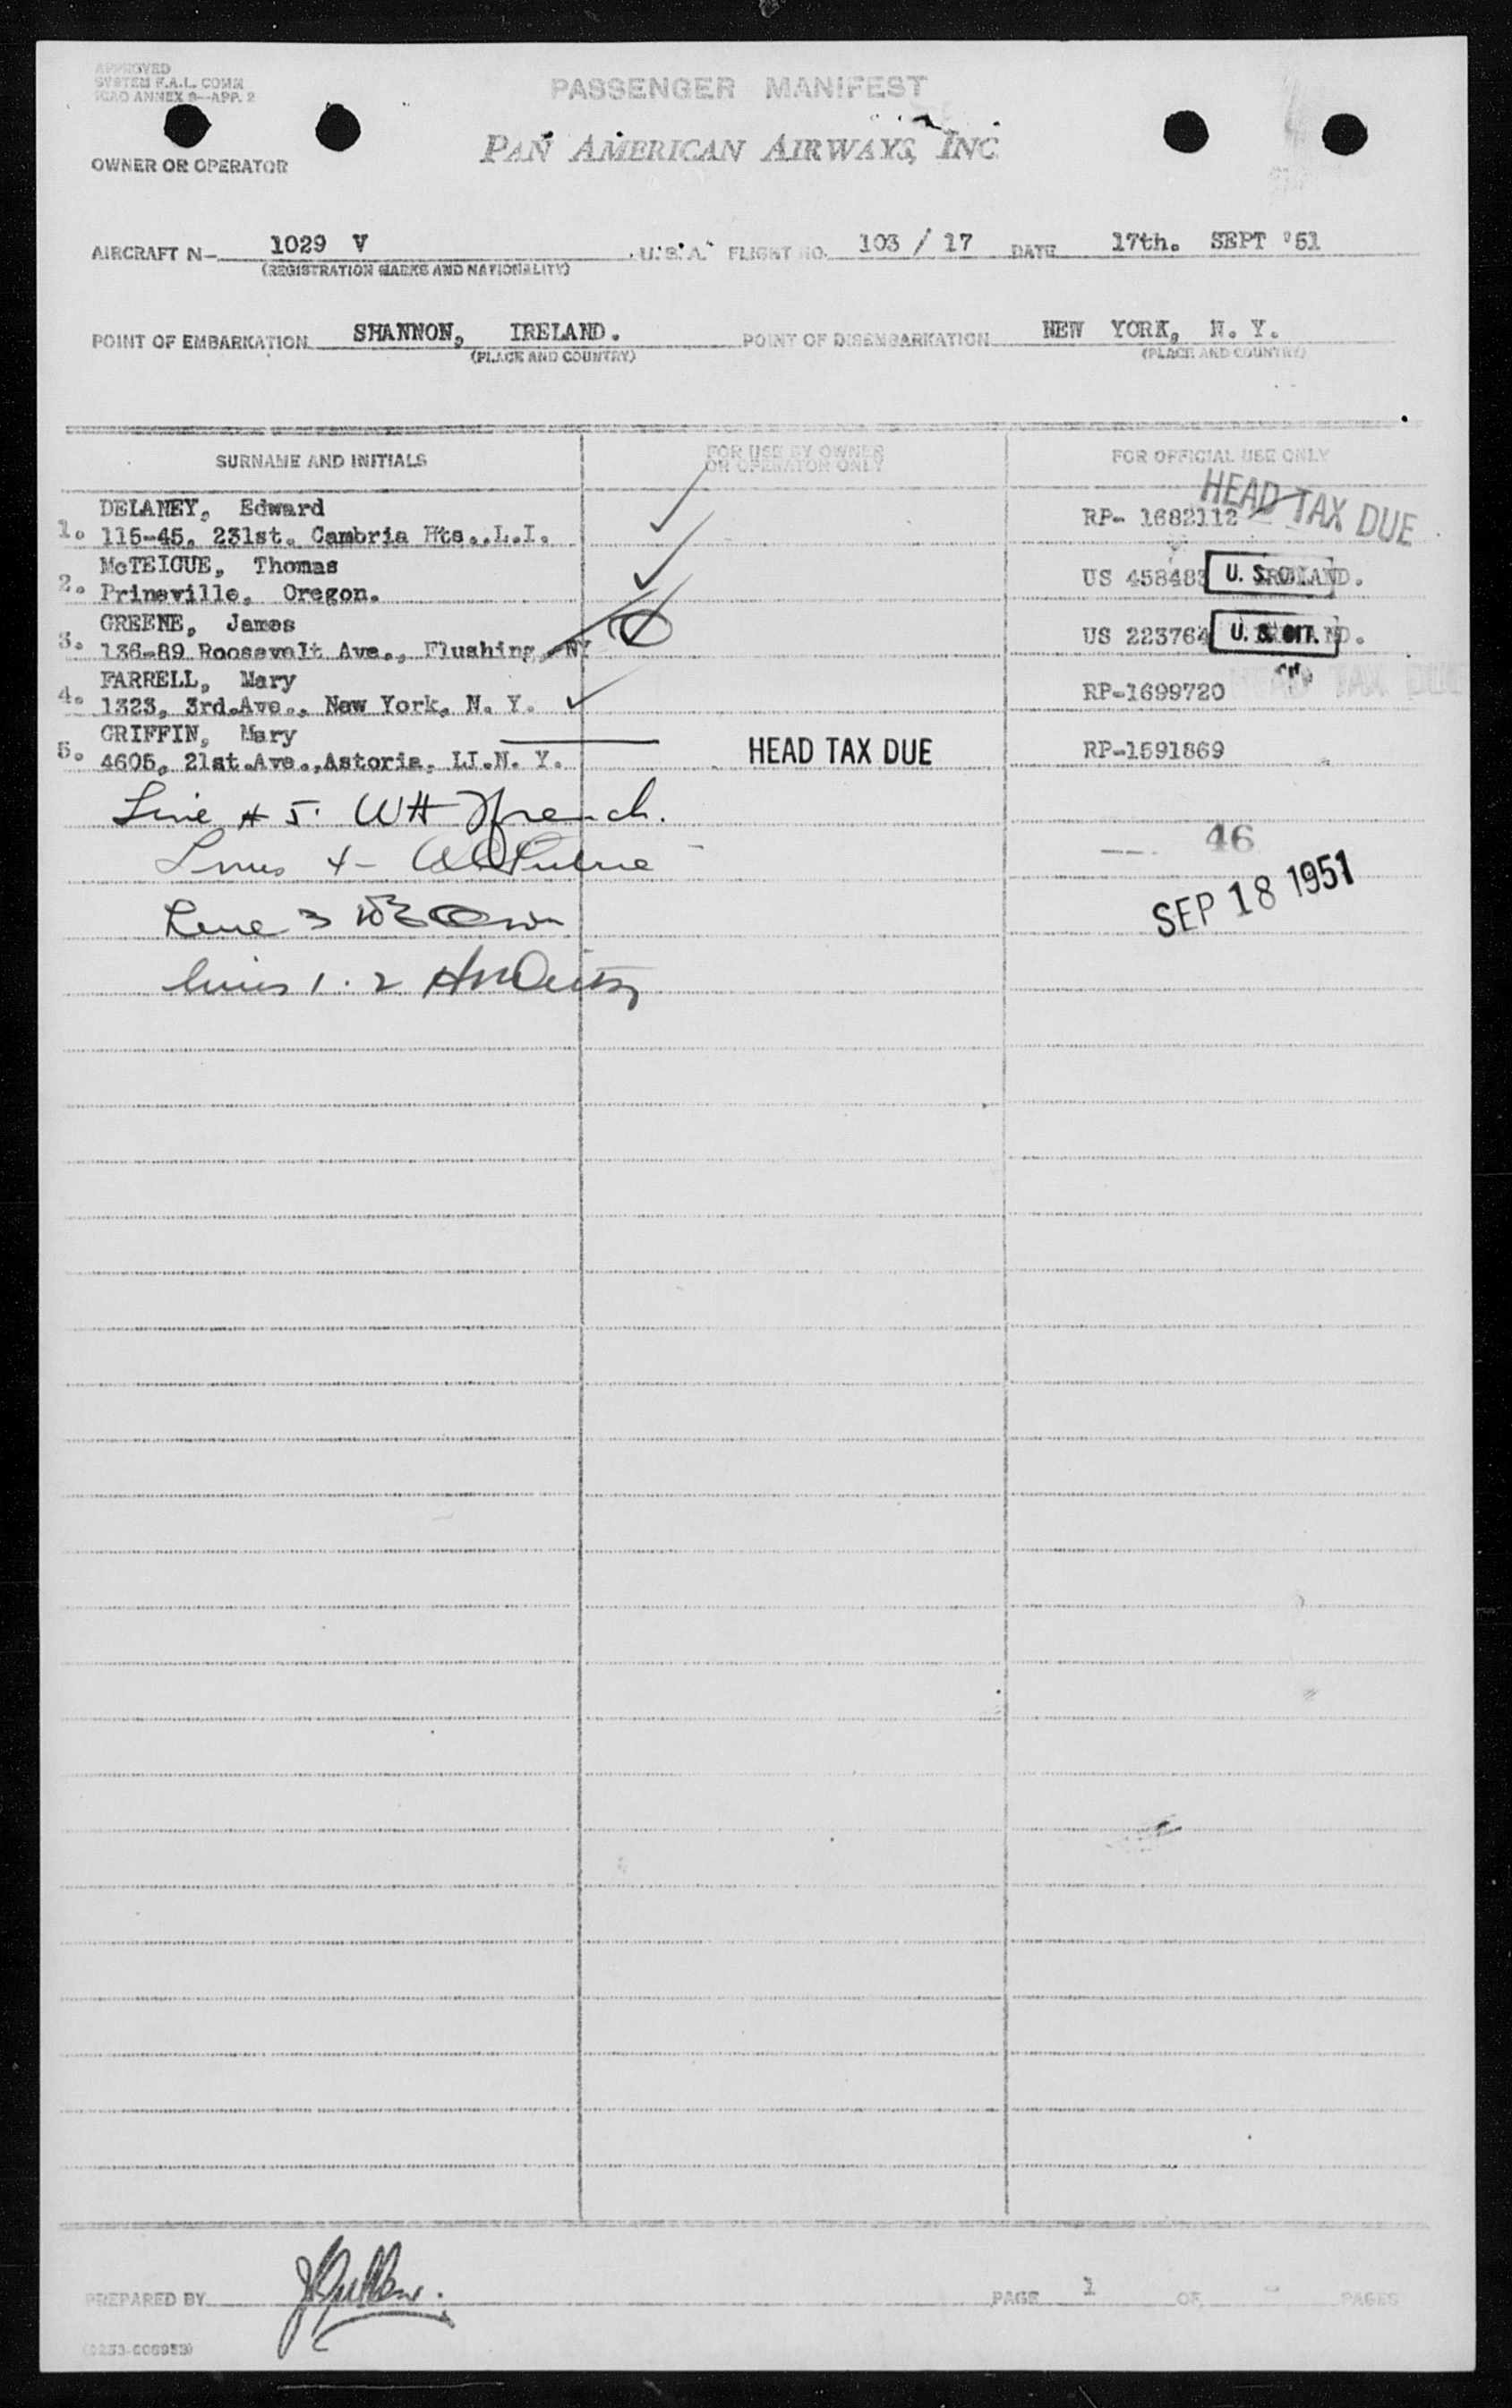 APPROVED
SYSTEM F.A.L. COMM
ICAO ANNEX 9—APP. 2
PASSENGER MANIFEST
PAN AMERICAN AIRWAYS, INC.
OWNER OR OPERATOR
AIRCRAFT N- 1029 V U.S.A. FLIGHT NO. 103 / 17 DATE 17th. SEPT '51
(REGISTRATION MARKS AND NATIONALITY)
POINT OF EMBARKATION SHANNON, IRELAND. POINT OF DISEMBARKATION NEW YORK, N. Y.
(PLACE AND COUNTRY) (PLACE AND COUNTRY)
SURNAME AND INITIALS FOR USE BY OWNER OR OPERATOR ONLY FOR OFFICIAL USE ONLY
HEAD TAX DUE
DELANEY, Edward
1. 115-45, 231st. Cambria Hts.,L.I. RP- 1682112
McTEIGUE, Thomas
2. Prineville, Oregon. US 458483 U. S.
GREENE, James
3. 136-89 Roosevelt Ave., Flushing, NY US 223764 U. S. CIT.
FARRELL, Mary
4. 1323, 3rd.Ave., New York, N. Y. RP-1699720 HEAD TAX DUE
GRIFFIN, Mary
5. 4605, 21st.Ave.,Astoria, LI.N. Y. HEAD TAX DUE RP-1591869
Line # 5. WH French.
46
Lines 4-
SEP 18 1951
Line 3
lines 1. 2
PREPARED BY PAGE 1 OF PAGES